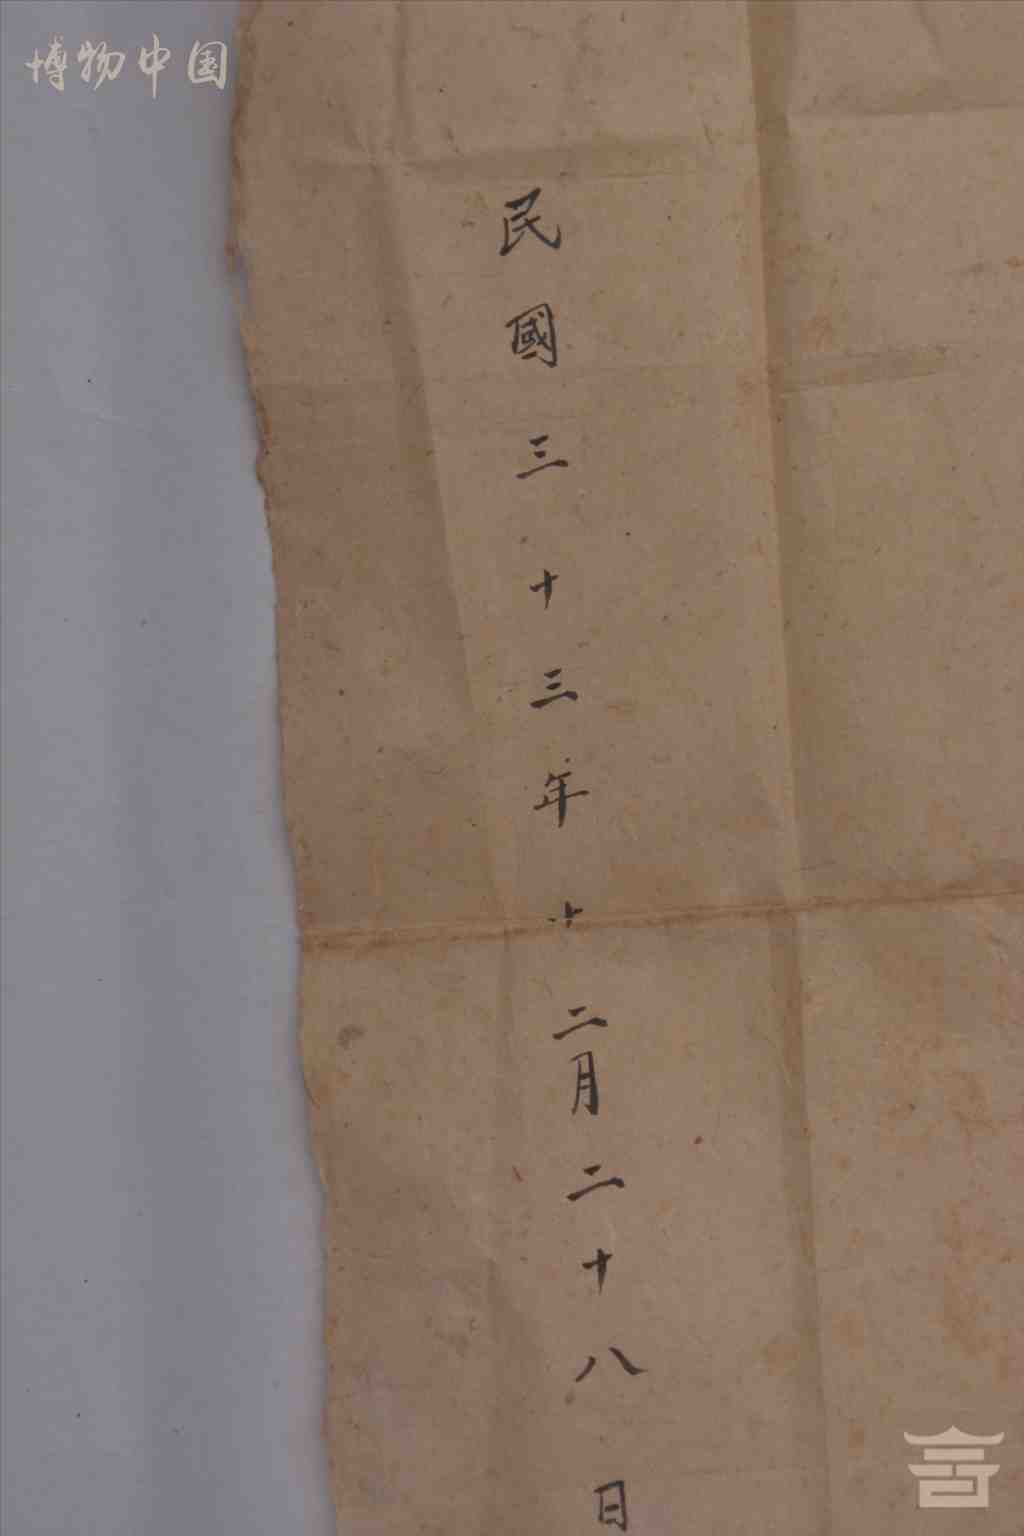 博物中国
民國三十三年十二月二十八日